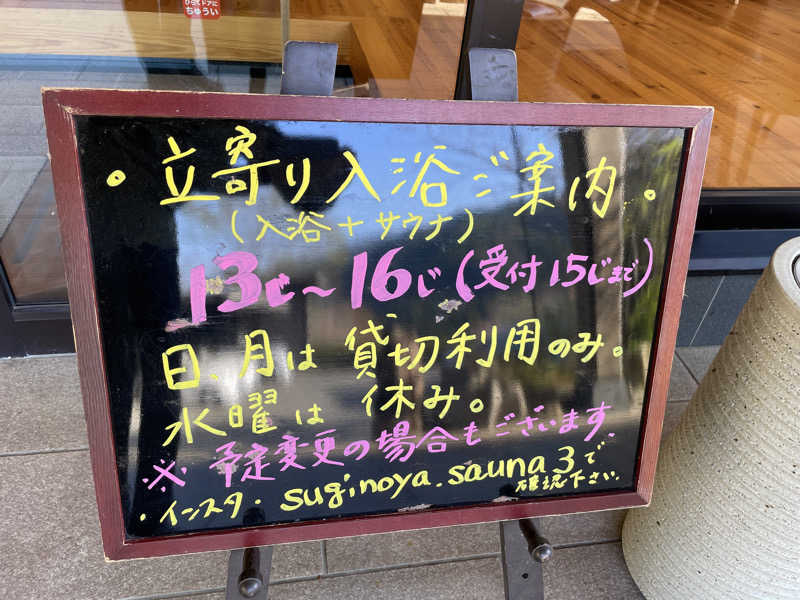 ちゅうい
・立寄り入浴ご案内。
(入浴+サウナ)
13じ〜16じ(受付15じまで)
日、月は貸切利用のみ。
水曜は休み。
※予定変更の場合もございます
・インスタ・suginoya.sauna3で
確認下さい。